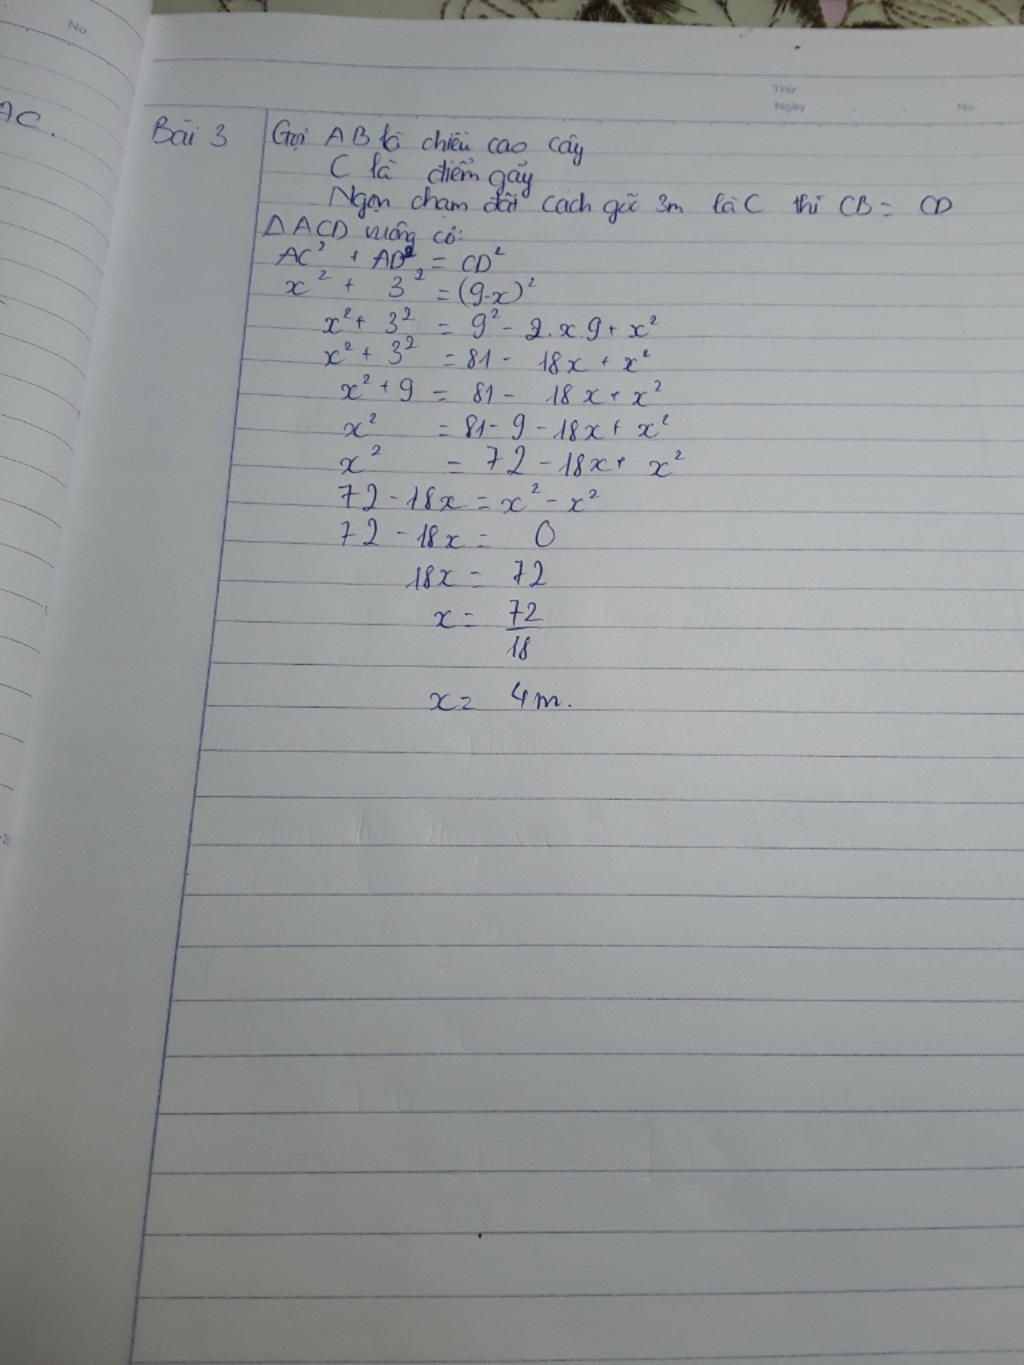 No.
AC.
Thứ
Ngày
No.
Bài 3
Gọi AB là chiều cao cây
C là điểm gãy
Ngọn chạm đất cách gốc 3m là C thì CB = CD
Δ ACD vuông có:
AC² + AD² = CD²
x² + 3² = (9-x)²
x² + 3² = 9² - 2.x.9 + x²
x² + 3² = 81 - 18x + x²
x² + 9 = 81 - 18x + x²
x² = 81 - 9 - 18x + x²
x² = 72 - 18x + x²
72 - 18x = x² - x²
72 - 18x = 0
18x = 72
x = 72/18
x = 4m.